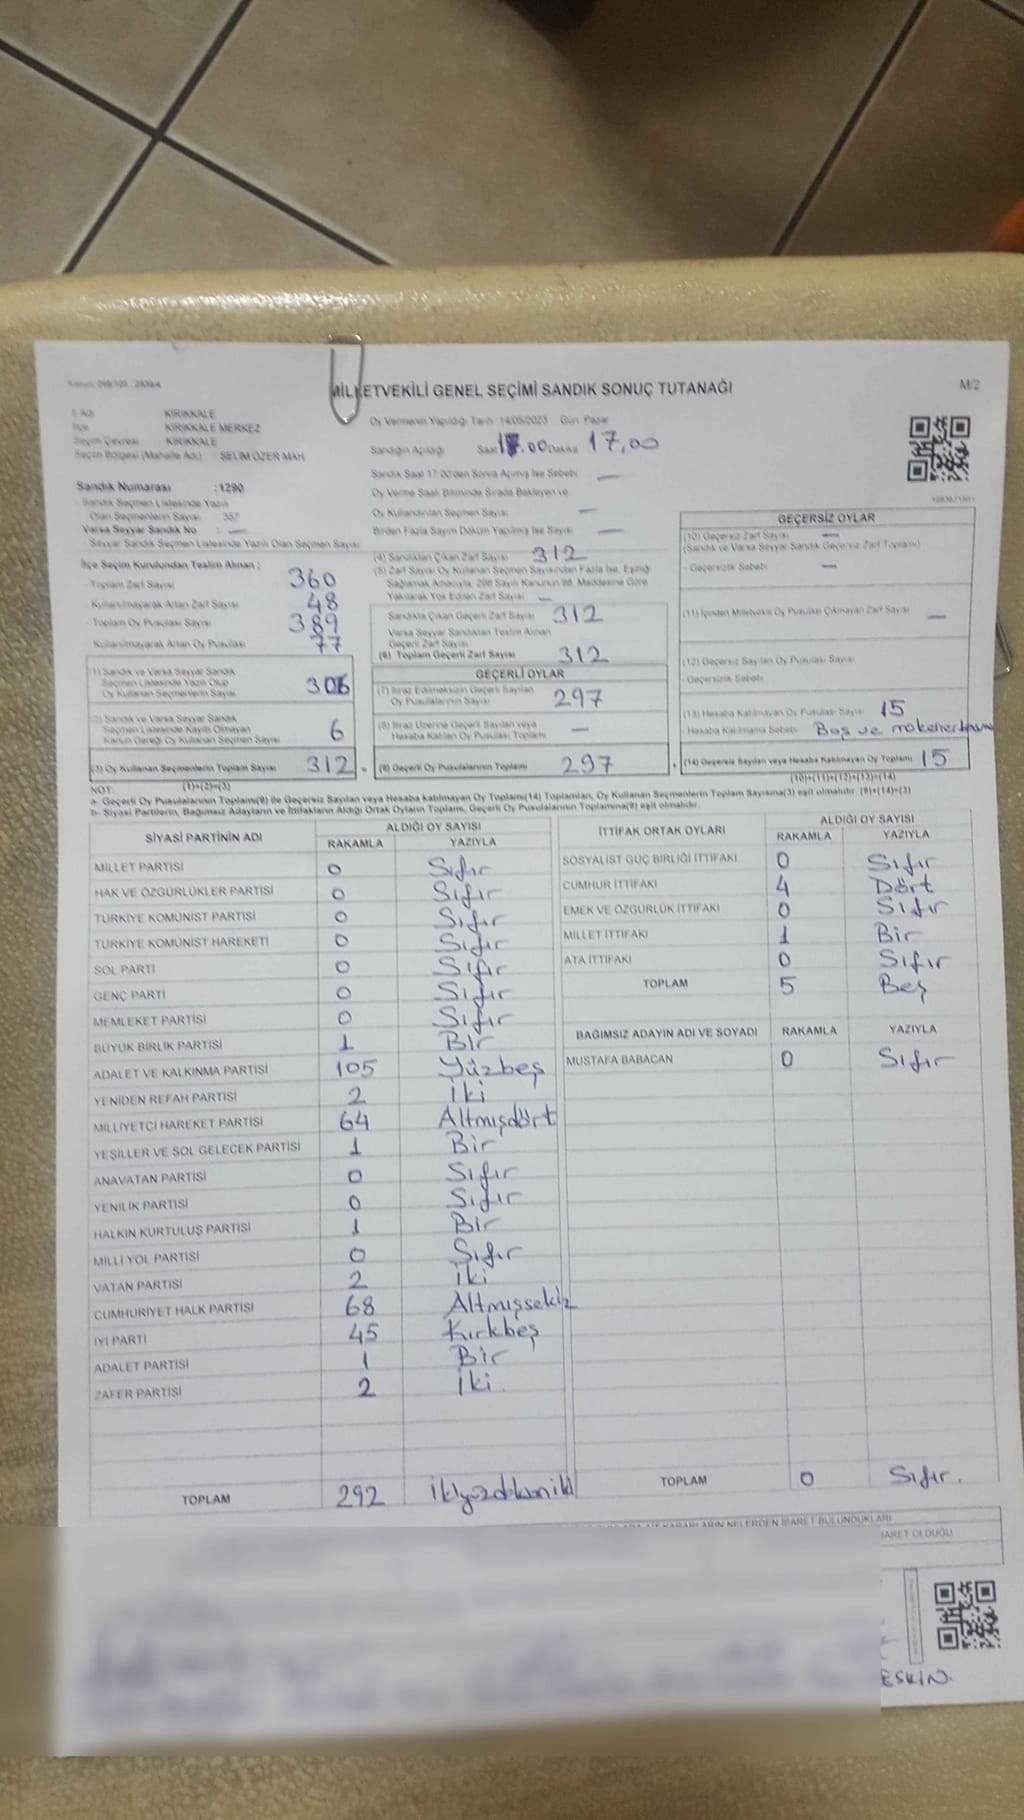 MİLLETVEKİLİ GENEL SEÇİMİ SANDIK SONUÇ TUTANAĞI
M/2
İl Adı KIRIKKALE
İlçe KIRIKKALE MERKEZ
Seçim Çevresi KIRIKKALE
Seçim Bölgesi (Mahalle Adı) SELİM ÖZER MAH.
Sandık Numarası :1290
Sandık Seçmen Listesinde Yazılı
Olan Seçmenlerin Sayısı : 357
Varsa Seyyar Sandık No : —
Seyyar Sandık Seçmen Listesinde Yazılı Olan Seçmen Sayısı
İlçe Seçim Kurulundan Teslim Alınan ;
- Toplam Zarf Sayısı 360
- Kullanılmayarak Artan Zarf Sayısı 48
- Toplam Oy Pusulası Sayısı 389
- Kullanılmayarak Artan Oy Pusulası 77
(1) Sandık ve Varsa Seyyar Sandık
Seçmen Listesinde Yazılı Olup
Oy Kullanan Seçmenlerin Sayısı 306
(2) Sandık ve Varsa Seyyar Sandık
Seçmen Listesinde Kayıtlı Olmayan
Kanun Gereği Oy Kullanan Seçmen Sayısı 6
(3) Oy Kullanan Seçmenlerin Toplam Sayısı 312
(1)+(2)=(3)
Oy Vermenin Yapıldığı Tarih : 14/05/2023 Gün: Pazar
Sandığın Açıldığı Saat 17.00 Dakika 17,00
Sandık Saat 17:00'den Sonra Açılmış İse Sebebi —
Oy Verme Saati Bitiminde Sırada Bekleyen ve
Oy Kullandırılan Seçmen Sayısı —
Birden Fazla Sayım Döküm Yapılmış İse Sayısı —
(4) Sandıktan Çıkan Zarf Sayısı 312
(5) Zarf Sayısı Oy Kullanan Seçmen Sayısından Fazla İse, Eşitliği
Sağlamak Amacıyla, 298 Sayılı Kanunun 98. Maddesine Göre
Yakılarak Yok Edilen Zarf Sayısı —
Sandıkta Çıkan Geçerli Zarf Sayısı 312
Varsa Seyyar Sandıktan Teslim Alınan
Geçerli Zarf Sayısı
(6) Toplam Geçerli Zarf Sayısı 312
GEÇERLİ OYLAR
(7) İtiraz Edilmeksizin Geçerli Sayılan
Oy Pusulalarının Sayısı 297
(8) İtiraz Üzerine Geçerli Sayılan veya
Hesaba Katılan Oy Pusulası Toplamı —
(9) Geçerli Oy Pusulalarının Toplamı 297
GEÇERSİZ OYLAR
(10) Geçersiz Zarf Sayısı —
(Sandık ve Varsa Seyyar Sandık Geçersiz Zarf Toplamı)
- Geçersizlik Sebebi —
(11) İçinden Milletvekili Oy Pusulası Çıkmayan Zarf Sayısı —
(12) Geçersiz Sayılan Oy Pusulası Sayısı
Geçersizlik Sebebi
(13) Hesaba Katılmayan Oy Pusulası Sayısı 15
Hesaba Katılmama Sebebi Boş ve
(14) Geçersiz Sayılan veya Hesaba Katılmayan Oy Toplamı 15
(10)+(11)+(12)+(13)=(14)
NOT:
a- Geçerli Oy Pusulalarının Toplamı(9) ile Geçersiz Sayılan veya Hesaba katılmayan Oy Toplamı(14) Toplamları, Oy Kullanan Seçmenlerin Toplam Sayısına(3) eşit olmalıdır. (9)+(14)=(3)
b- Siyasi Partilerin, Bağımsız Adayların ve İttifakların Aldığı Ortak Oyların Toplamı, Geçerli Oy Pusulalarının Toplamına(9) eşit olmalıdır.
SİYASİ PARTİNİN ADI ALDIĞI OY SAYISI
RAKAMLA YAZIYLA
MİLLET PARTİSİ 0 Sıfır
HAK VE ÖZGÜRLÜKLER PARTİSİ 0 Sıfır
TÜRKİYE KOMÜNİST PARTİSİ 0 Sıfır
TÜRKİYE KOMÜNİST HAREKETİ 0 Sıfır
SOL PARTİ 0 Sıfır
GENÇ PARTİ 0 Sıfır
MEMLEKET PARTİSİ 0 Sıfır
BÜYÜK BİRLİK PARTİSİ 1 Bir
ADALET VE KALKINMA PARTİSİ 105 Yüzbeş
YENİDEN REFAH PARTİSİ 2 İki
MİLLİYETÇİ HAREKET PARTİSİ 64 Altmışdört
YEŞİLLER VE SOL GELECEK PARTİSİ 1 Bir
ANAVATAN PARTİSİ 0 Sıfır
YENİLİK PARTİSİ 0 Sıfır
HALKIN KURTULUŞ PARTİSİ 1 Bir
MİLLİ YOL PARTİSİ 0 Sıfır
VATAN PARTİSİ 2 İki
CUMHURİYET HALK PARTİSİ 68 Altmışsekiz
İYİ PARTİ 45 Kırkbeş
ADALET PARTİSİ 1 Bir
ZAFER PARTİSİ 2 İki
TOPLAM 292
İTTİFAK ORTAK OYLARI ALDIĞI OY SAYISI
RAKAMLA YAZIYLA
SOSYALİST GÜÇ BİRLİĞİ İTTİFAKI 0 Sıfır
CUMHUR İTTİFAKI 4 Dört
EMEK VE ÖZGÜRLÜK İTTİFAKI 0 Sıfır
MİLLET İTTİFAKI 1 Bir
ATA İTTİFAKI 0 Sıfır
TOPLAM 5 Beş
BAĞIMSIZ ADAYIN ADI VE SOYADI RAKAMLA YAZIYLA
MUSTAFA BABACAN 0 Sıfır
TOPLAM 0 Sıfır.
NELERDEN İBARET BULUNDUKLARI
İBARET OLDUĞU
ESKİN.